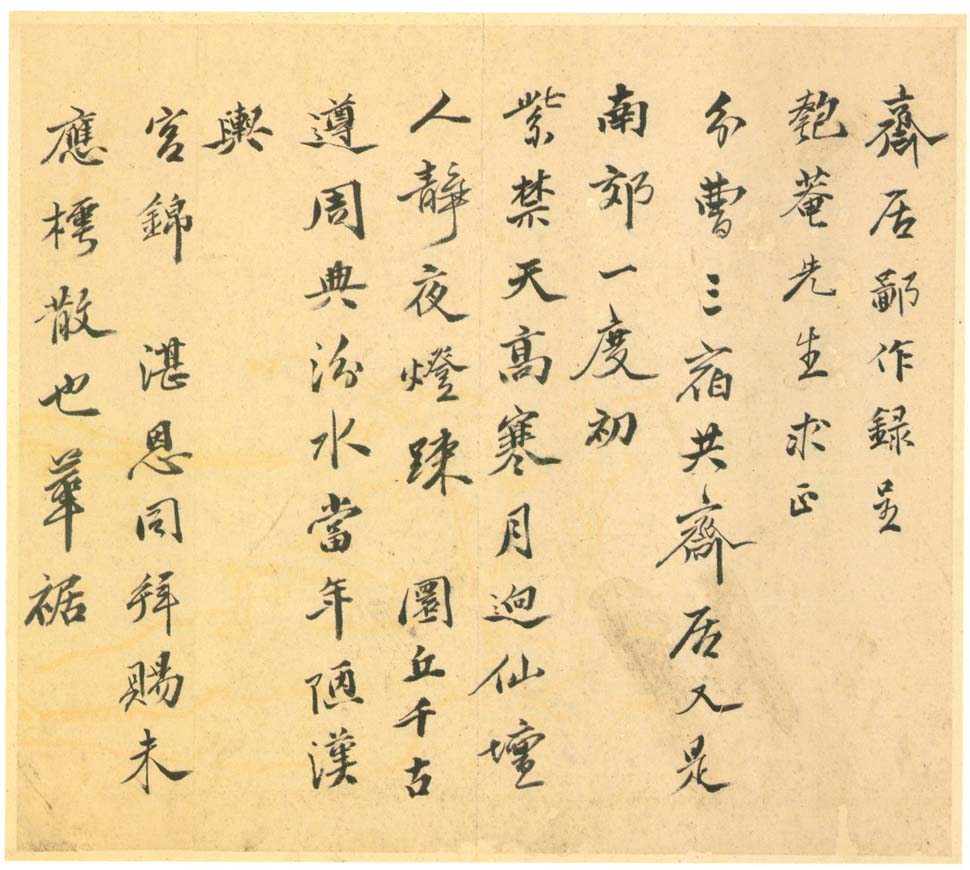 齋居鄙作録呈
匏菴先生求正
分曹三宿共齋居又是
南郊一度初
紫禁天高寒月迥仙壇
人靜夜燈疎 圜丘千古
遵周典汾水當年陋漢
輿
宮錦 湛恩同拜賜未
應樗散也華裾